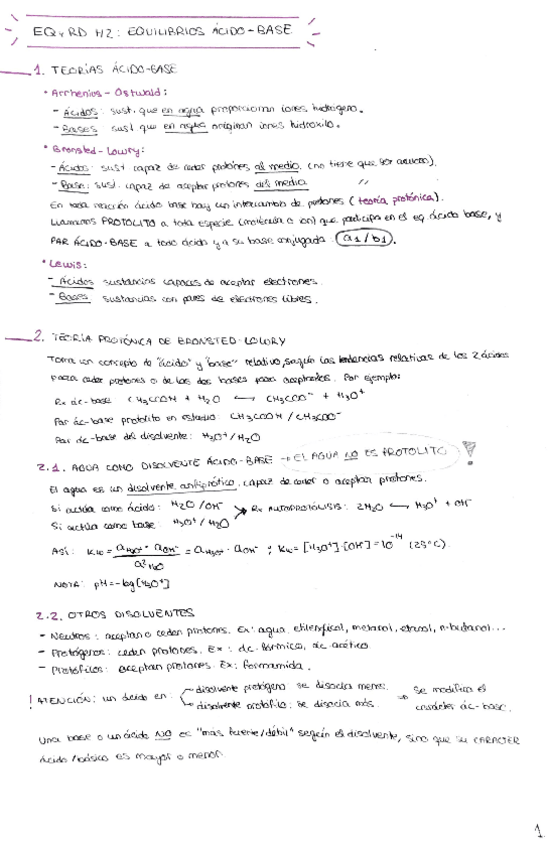 EQ y RD H2: EQUILIBRIOS ÁCIDO-BASE
1. TEORÍAS ÁCIDO-BASE
• Arrhenios - Ostwald:
- Ácidos: sust. que en agua proporcionan iones hidrógeno.
- Bases sust. que en agua originan iones hidroxilo.
• Bronsted - Lowry:
- Ácidos: sust capaz de ceder protones al medio. (no tiene que ser acuoso).
- Base: sust. capaz de aceptar protones del medio "
En toda reacción ácido base hay un intercambio de protones (teoría protónica).
Llamamos PROTOLITO a toda especie (molécula o ion) que participa en el eq. ácido base, y
PAR ÁCIDO-BASE a todo ácido y a su base conjugada (a1/b1).
• Lewis:
- Ácidos sustancias capaces de aceptar electrones.
- Bases sustancias con pares de electrones libres.
2. TEORÍA PROTÓNICA DE BRONSTED-LOWRY
Toma un concepto de "ácido" y "base" relativo, según las tendencias relativas de los 2 ácidos
para ceder protones o de las dos bases para aceptarlos. Por ejemplo:
Rx ác-base: CH3COOH + H2O ⟷ CH3COO⁻ + H3O⁺
Par ác-base protolito en estudio: CH3COOH / CH3COO⁻
Par ác-base del disolvente: H3O⁺/H2O
2.1. AGUA COMO DISOLVENTE ÁCIDO-BASE → EL AGUA NO ES PROTOLITO !
El agua es un disolvente anfiprótico, capaz de ceder o aceptar protones.
Si actúa como ácido: H2O/OH⁻
Si actúa como base: H3O⁺/H2O
Rx AUTOPROTÓLISIS: 2H2O ⟷ H3O⁺ + OH⁻
Así: Kw = aH3O⁺ · aOH⁻ / a²H2O = aH3O⁺ · aOH⁻ ; Kw = [H3O⁺]·[OH⁻] = 10⁻¹⁴ (25°C).
NOTA: pH = -log[H3O⁺]
2.2. OTROS DISOLVENTES
- Neutros: aceptan o ceden protones. Ex: agua, etilenglicol, metanol, etanol, n-butanol...
- Protógenos: ceden protones. Ex: ác. fórmico, ác. acético.
- Protófilos: aceptan protones. Ex: formamida.
! ATENCIÓN: un ácido en:
disolvente protógeno se disocia menos.
disolvente protófilo: se disocia más.
⇒ Se modifica el
carácter ác-base.
Una base o un ácido NO es "más fuerte/débil" según el disolvente, sino que su CARÁCTER
ácido/básico es mayor o menor.
1